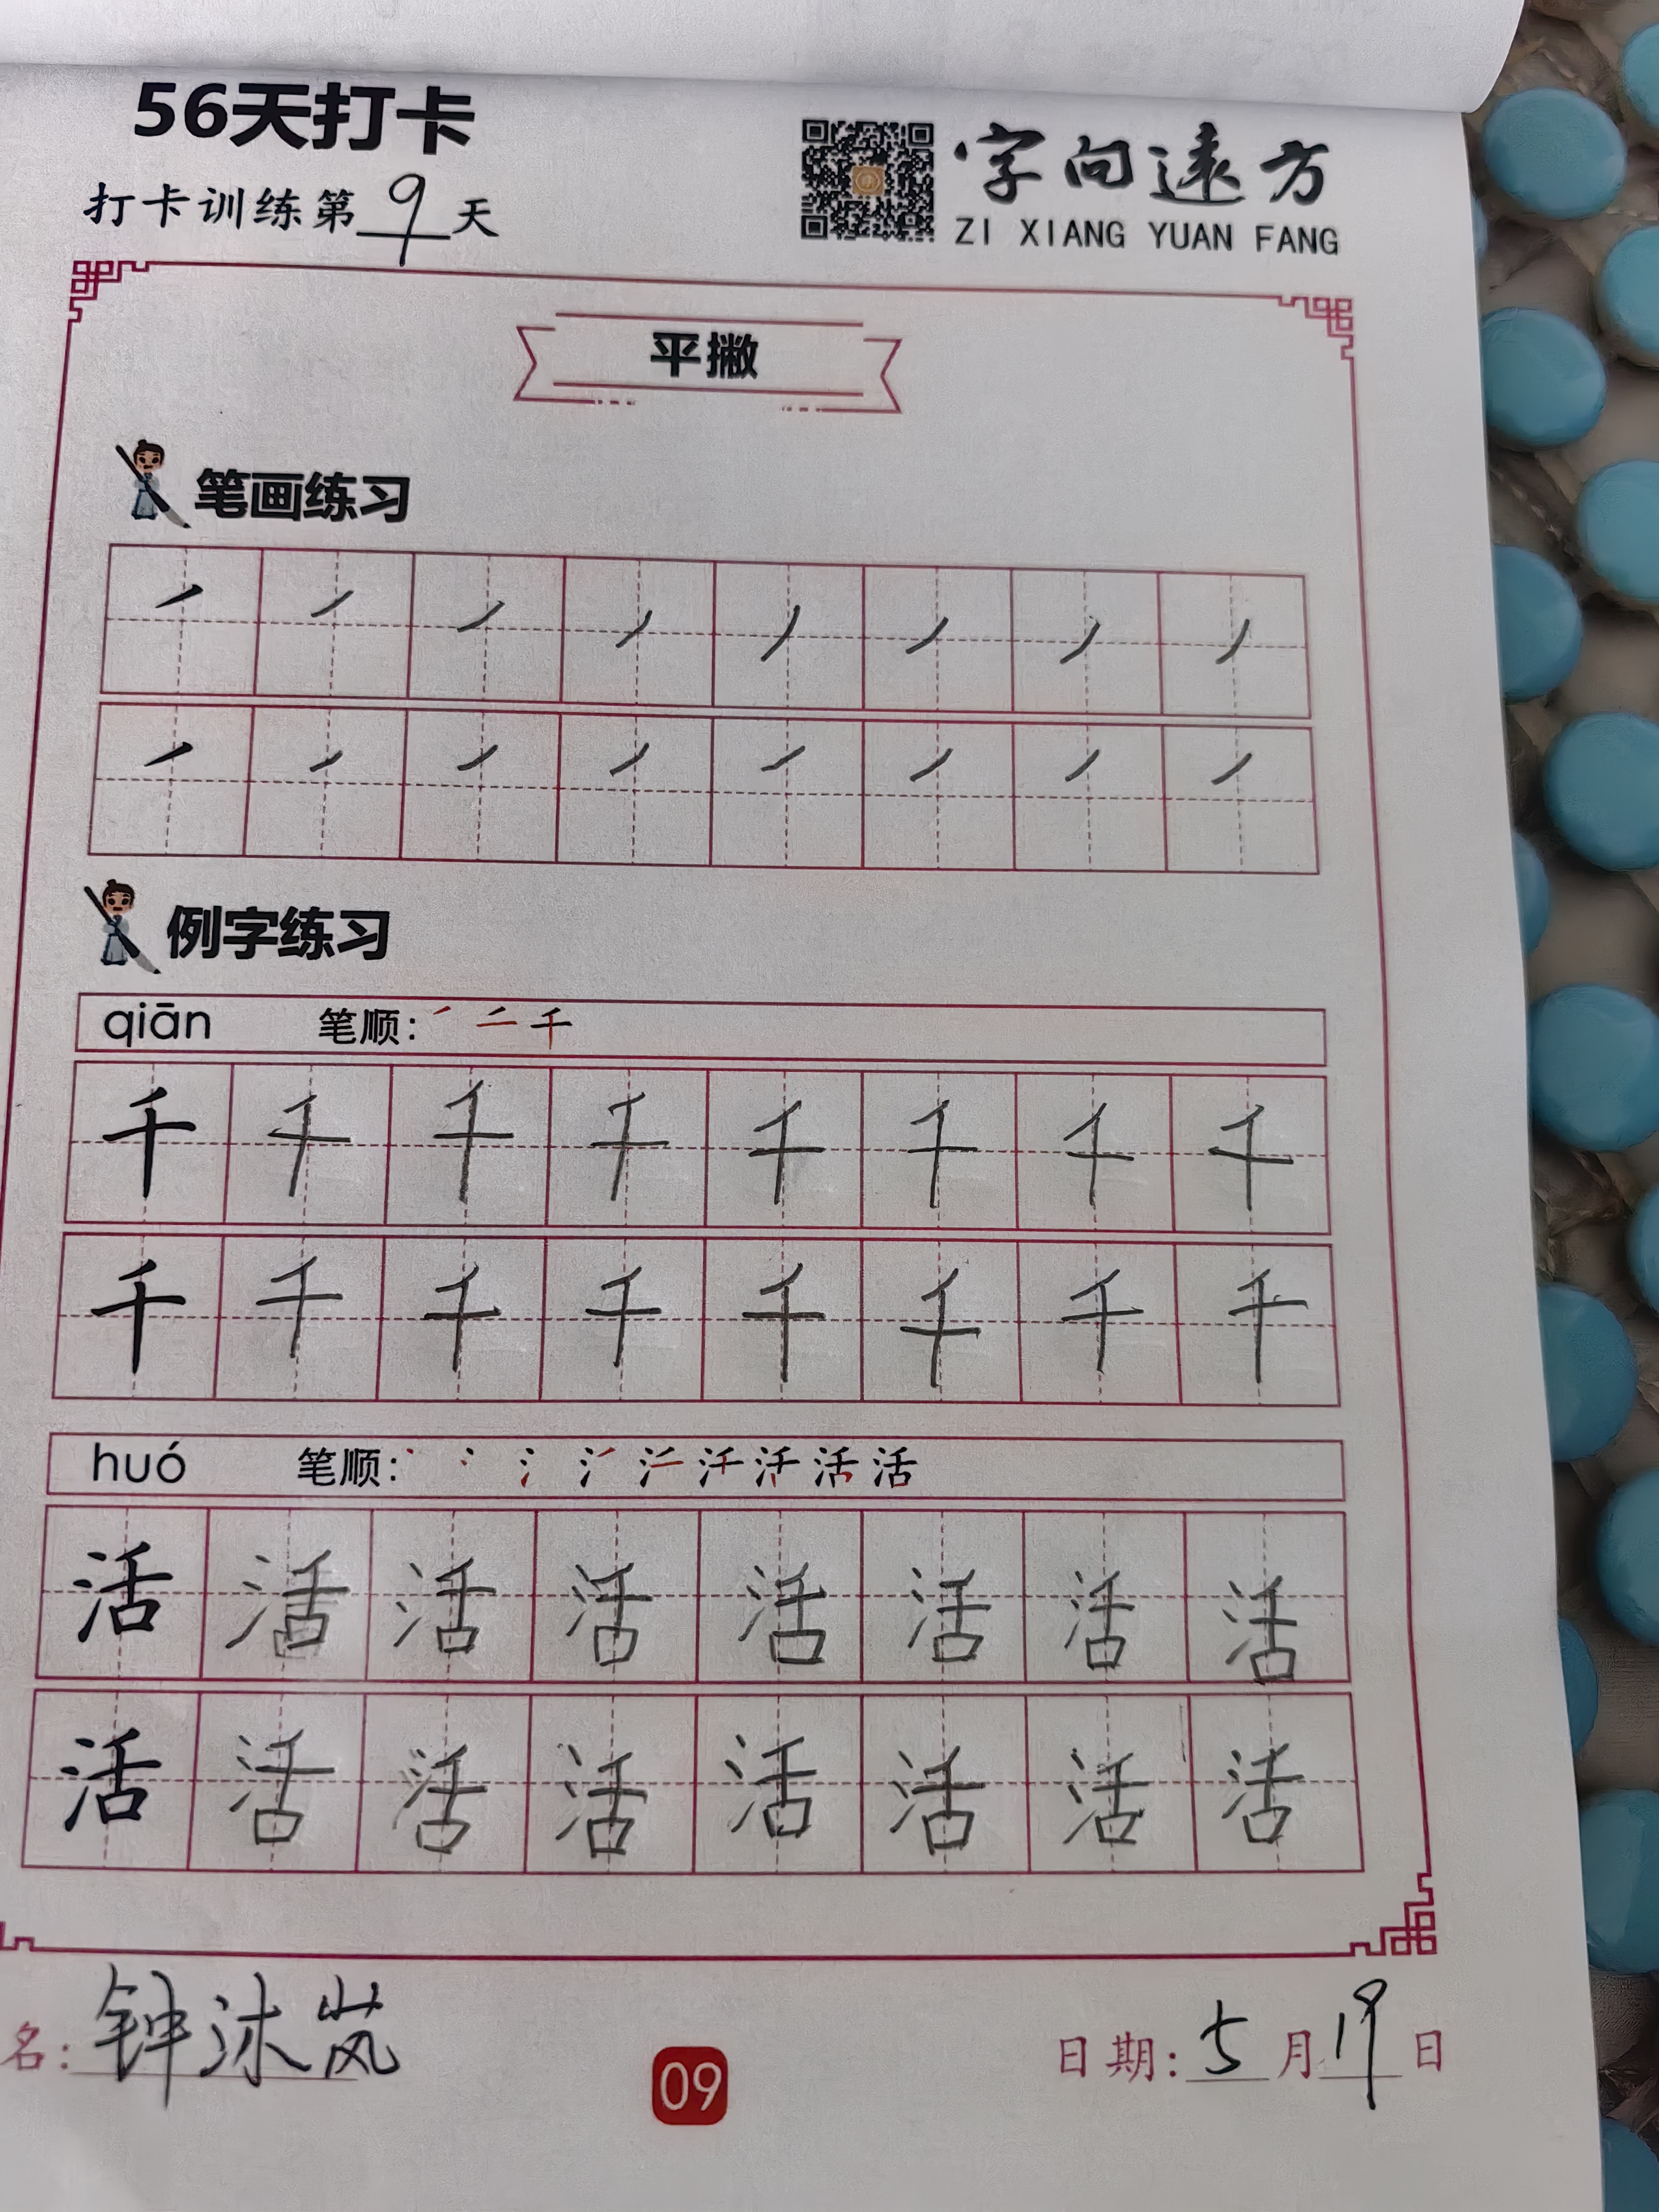 56天打卡
打卡训练第9天
字向远方
ZI XIANG YUAN FANG
平撇
笔画练习
例字练习
qiān 笔顺：
千 千 千 千 千 千 千 千
千 千 千 千 千 千 千 千
huó 笔顺：
活 活 活 活 活 活 活 活
活 活 活 活 活 活 活 活
名：钟沐岚
09
日期：5月19日